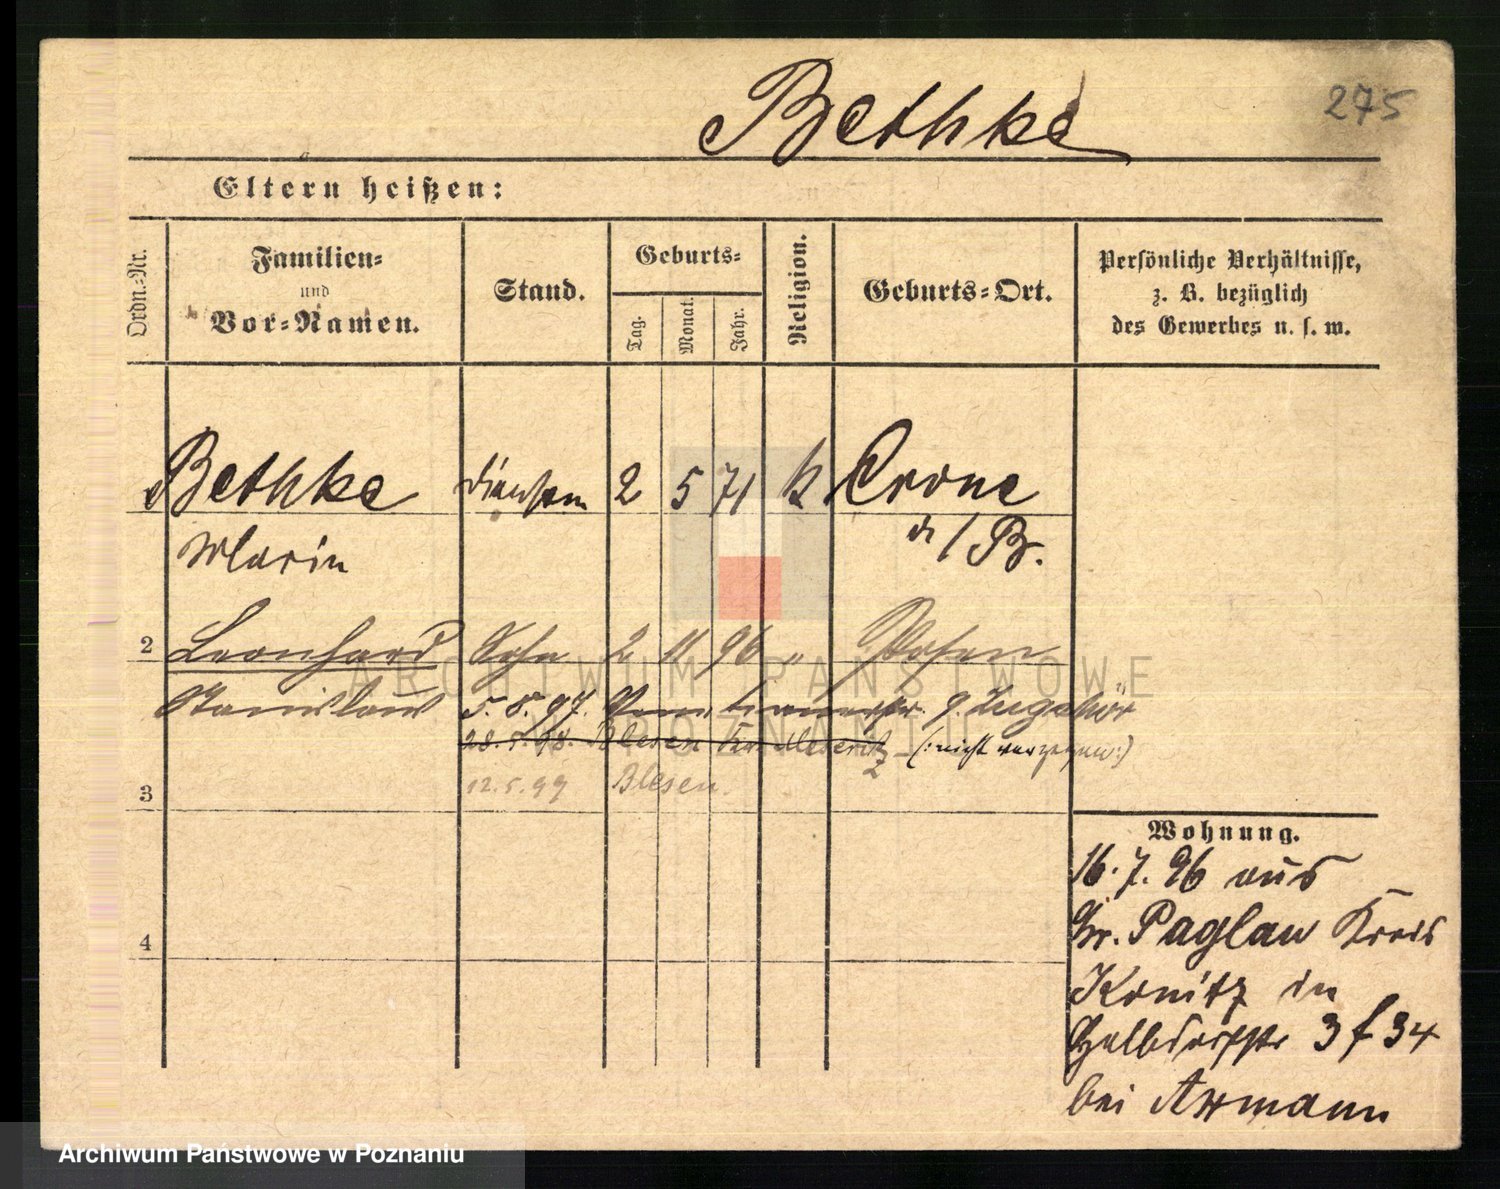 275
Bethke
Eltern heißen:
Ordn.-Nr.
Familien-
und
Vor-Namen.
Stand.
Geburts-
Tag.
Monat.
Jahr.
Religion.
Geburts-Ort.
Persönliche Verhältnisse,
z. B. bezüglich
des Gewerbes u. s. w.
Bethke 2 5 71 k Crone
Marie /Br.
2 Leonhard Sohn 2 11 96 " Posen
Stanislaus 5. 8. 97.
28. 5. 98. Blesen Kr. Meseritz (: nicht verzogen :)
12. 5. 99 Blesen.
3
4
Wohnung.
16. 7. 96 aus
Gr. Paglau Kreis
Konitz in
Halbdorfstr 34
bei Assmann
ARCHIWUM PAŃSTWOWE
W POZNANIU
Archiwum Państwowe w Poznaniu